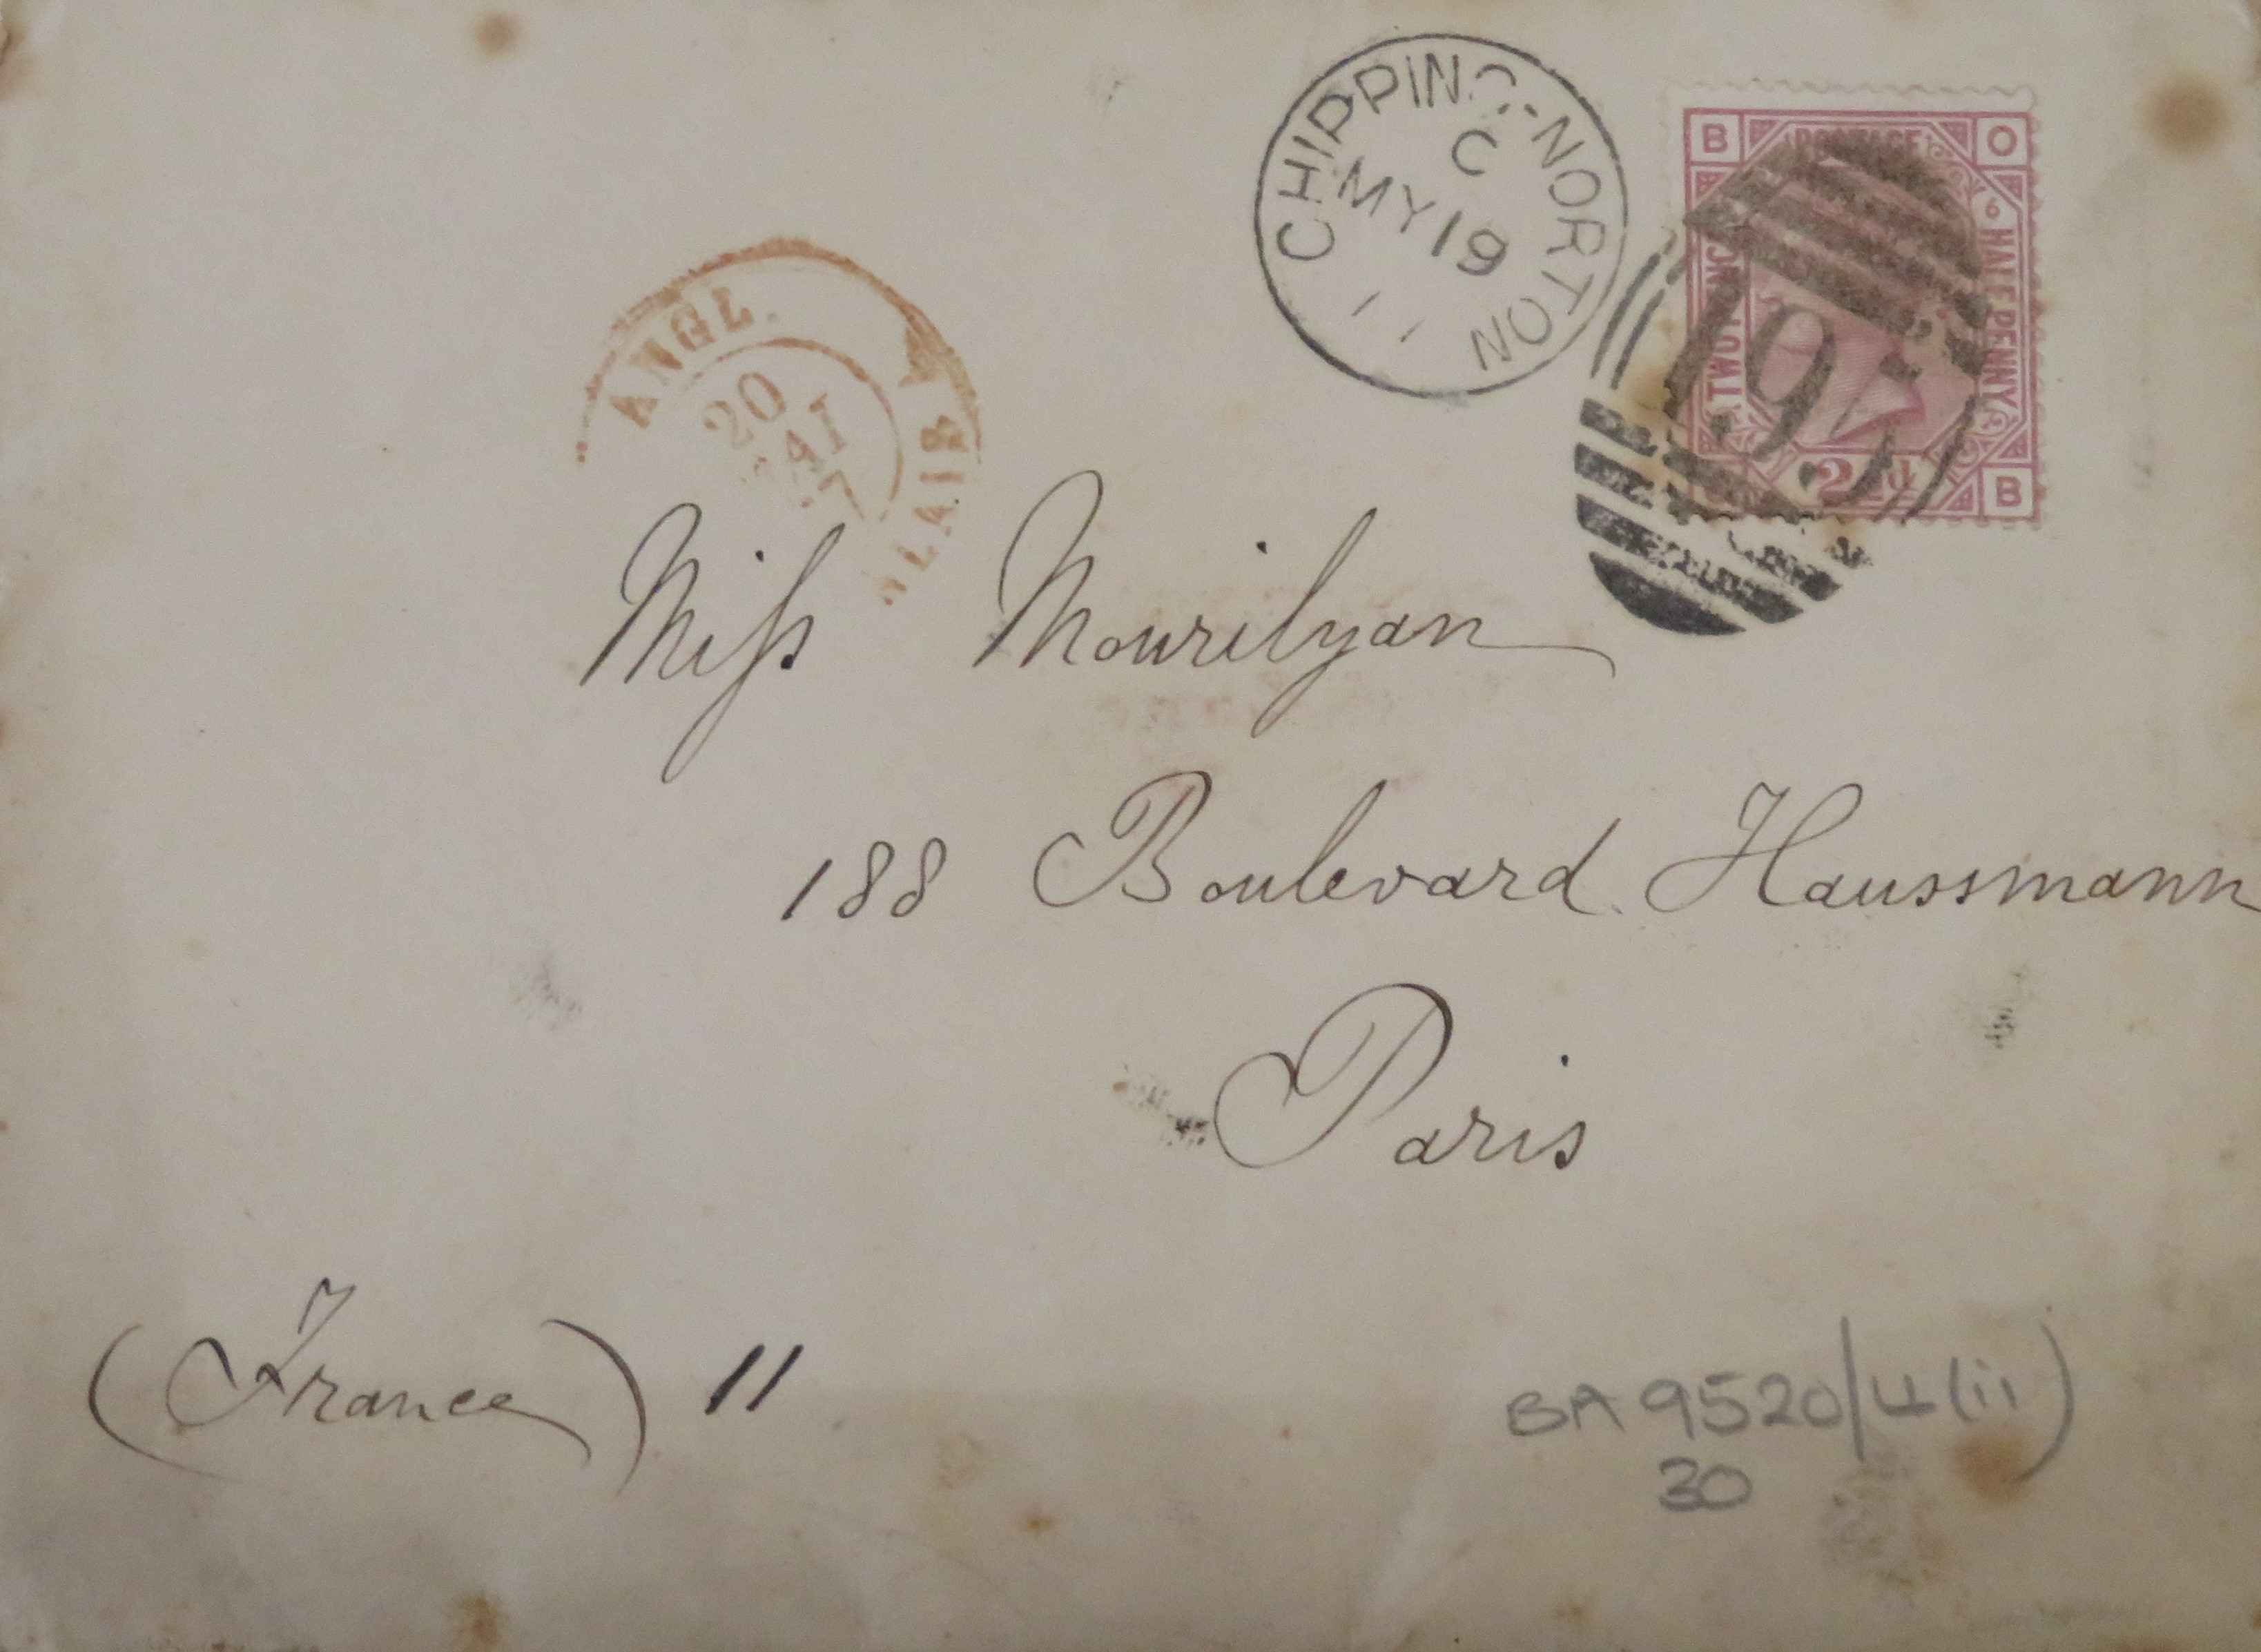 CHIPPING-NORTON
C
MY 19
B O
POSTAGE
6
TWOPENCE HALFPENNY
195
2½d
B
ANGL.
20
MAI
Miss Mourilyan
188 Boulevard Haussmann
Paris
(France) 11
BA 9520/4(ii)
30